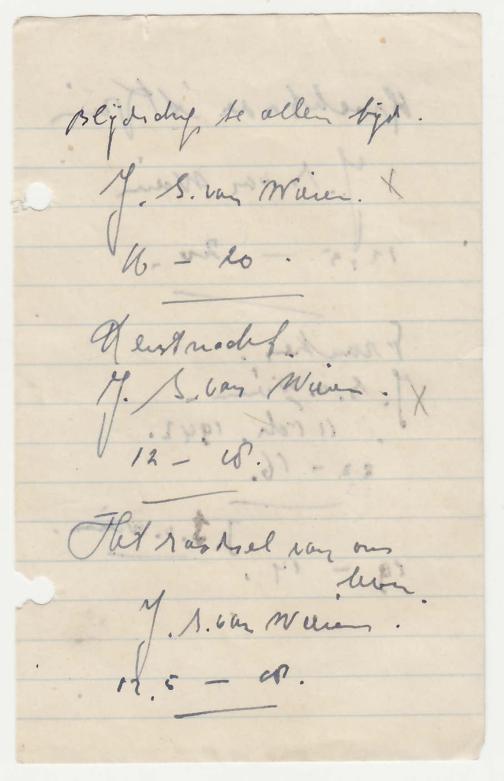 Blijdschap te allen tijd.
J. S. van Wieren. X
16 – 20.
Kerstnacht.
J. S. van Wieren. X
12 – 18.
Het raadsel van ons
leven.
J. S. van Wieren.
12.5 – 18.